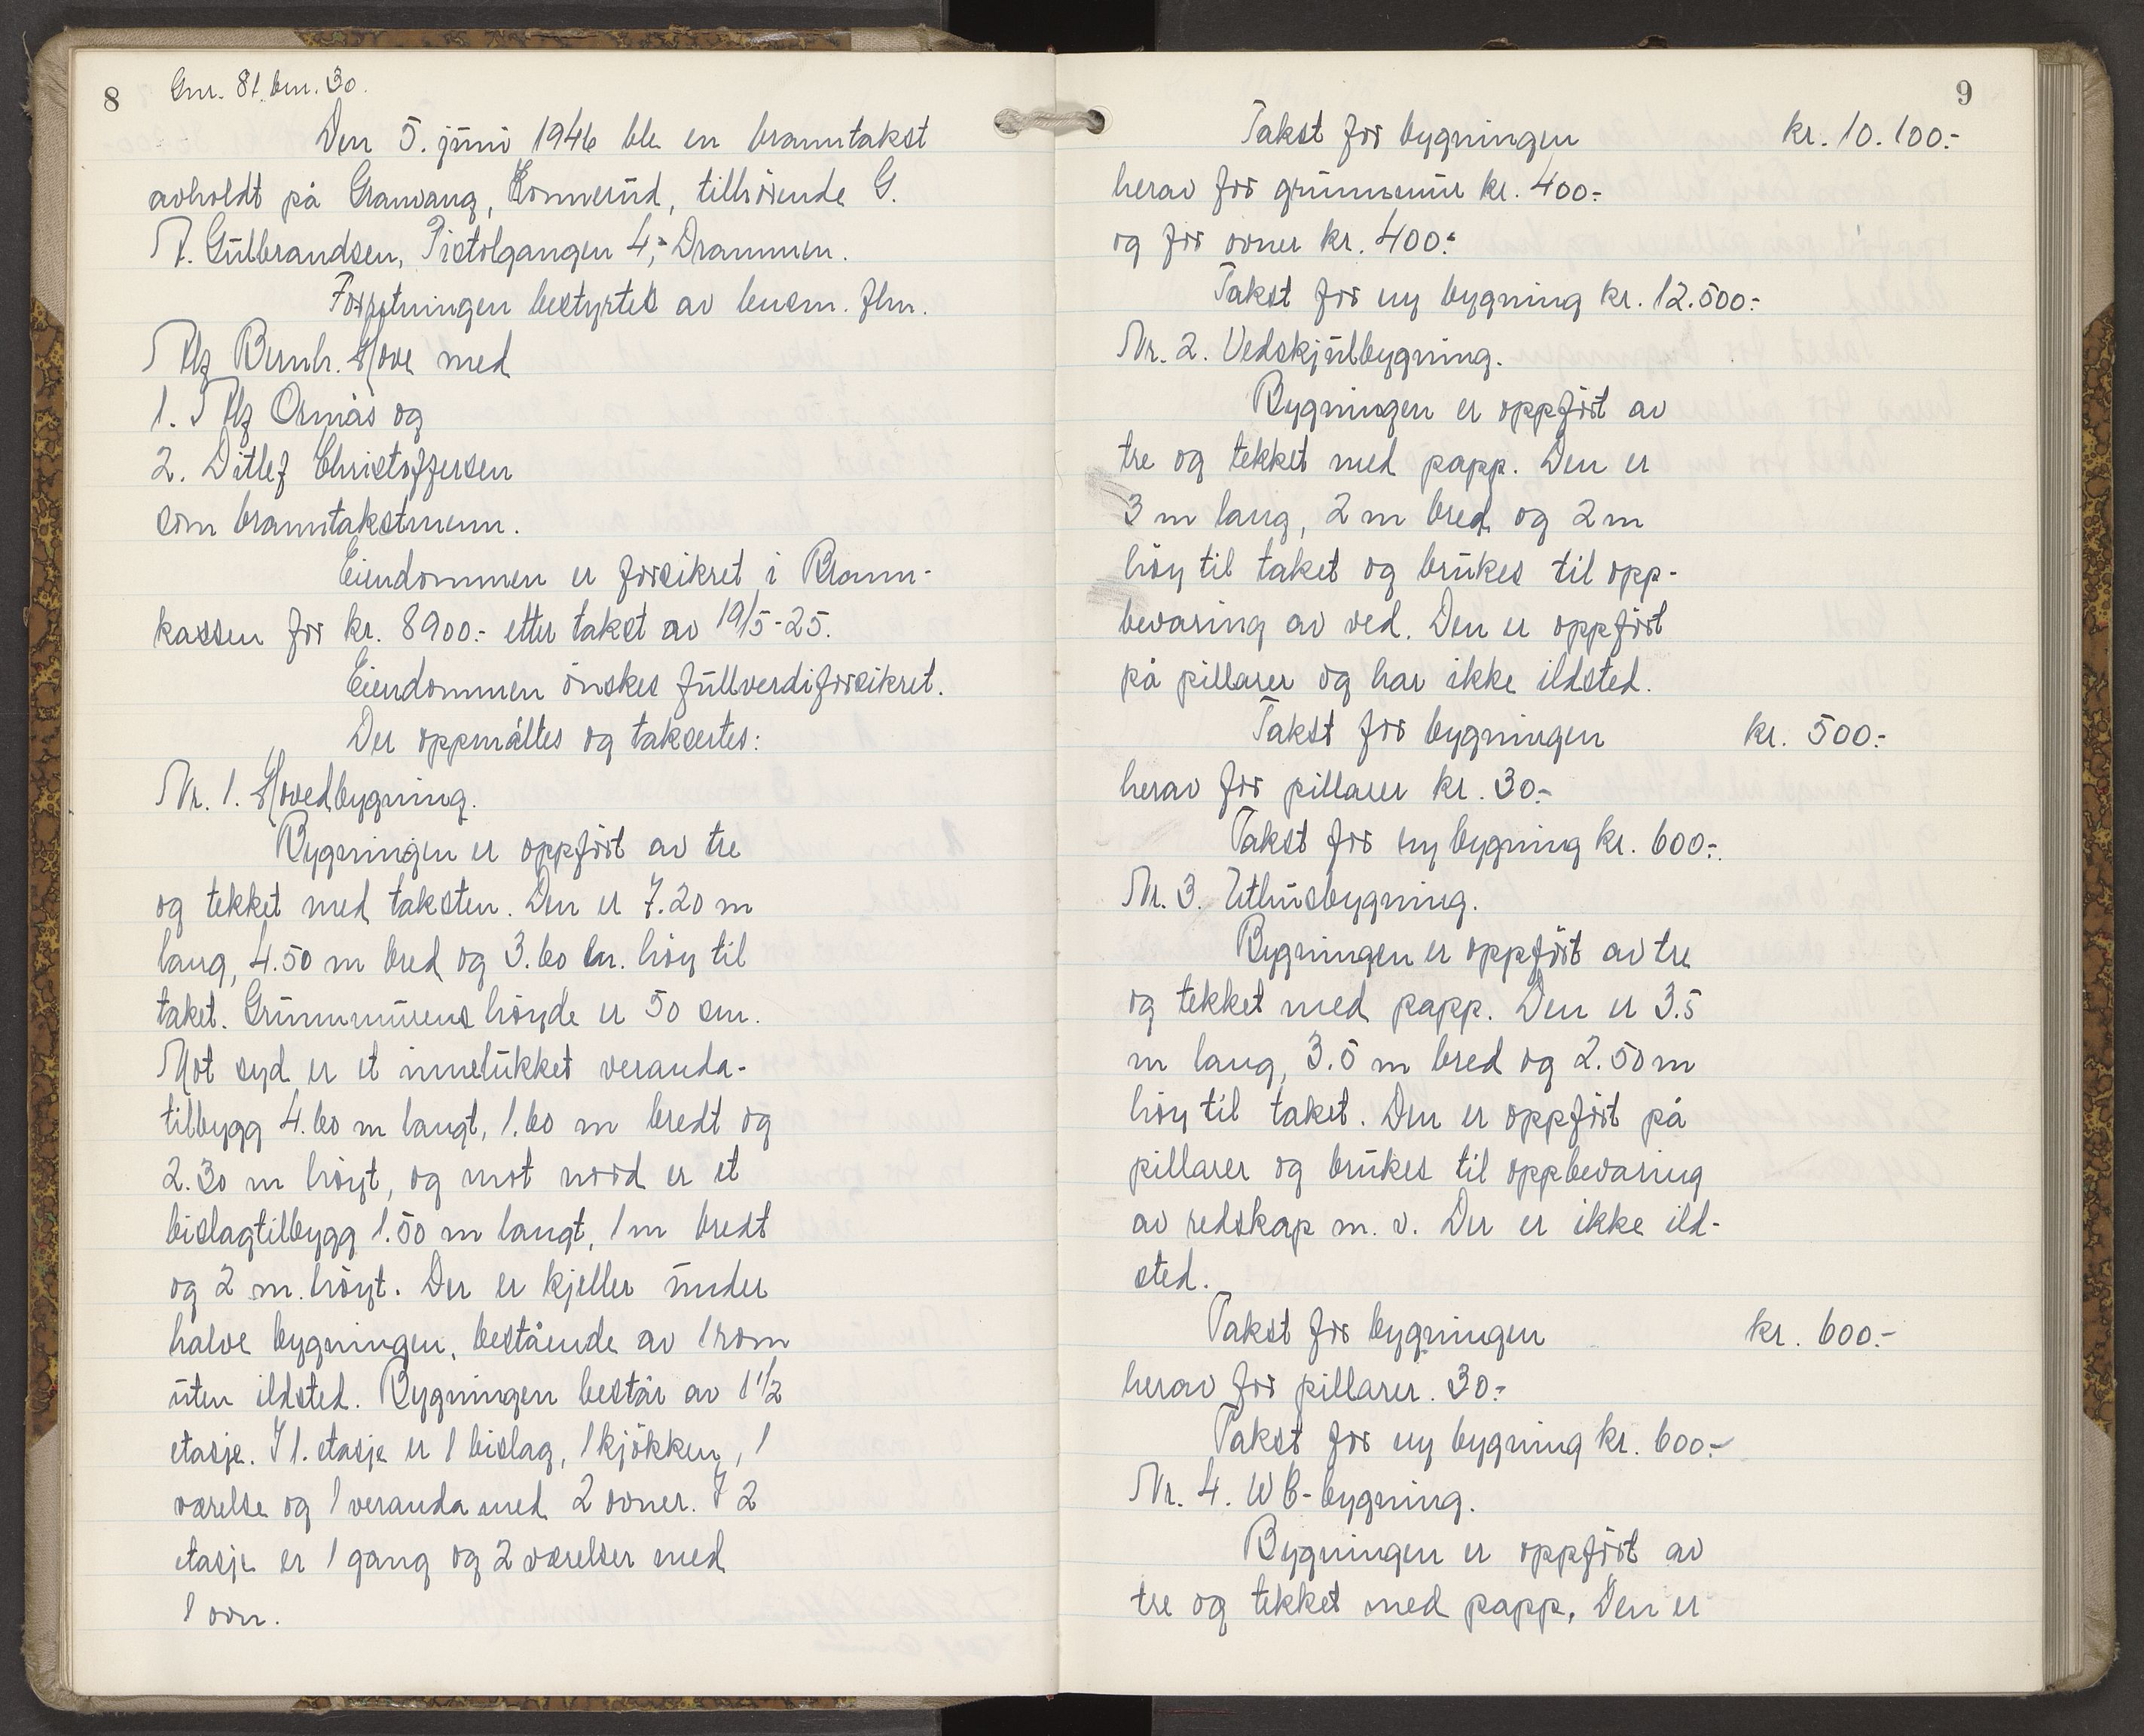 8 Gnr. 81. bnr. 30.
Den 5. juni 1946 ble en branntakst
avholdt på Granvang, Konnerud, tilhörende G.
A. Gulbrandsen, Pistolgangen 4, Drammen.
Forretningen bestyrtes av lensm. flm.
Alf Bernh. Hove med
1. Alf Osnäs og
2. Ditlef Christoffersen
som branntakstmenn.
Eiendommen er forsikret i Brann-
kassen for kr. 8900.- etter takst av 19/5-25.
Eiendommen önskes fullverdiforsikret.
Der oppmåltes og taksertes:
Nr. 1. Hovedbygning.
Bygningen er oppfört av tre
og tekket med taksten. Den er 7.20 m
lang, 4.50 m bred og 3.60 m. höy til
taket. Grunnmurens höyde er 50 cm.
Mot syd er et innelukket veranda-
tilbygg 4.60 m langt, 1.60 m bredt og
2.30 m höyt, og mot nord er et
bislagtilbygg 1.50 m langt, 1 m bredt
og 2 m. höyt. Der er kjeller under
halve bygningen, bestående av 1 rom
uten ildsted. Bygningen består av 1 1/2
etasje. I 1. etasje er 1 bislag, 1 kjökken, 1
værelse og 1 veranda med 2 ovner. I 2
etasje er 1 gang og 2 værelser med
1 ovn.
9
Takst for bygningen kr. 10.100:-
herav for grunnmur kr. 400:-
og for ovner kr. 400:-
Takst for ny bygning kr. 12.500:-
Nr. 2. Vedskjulbygning.
Bygningen er oppfört av
tre og tekket med papp. Den er
3 m lang, 2 m bred og 2 m
höy til taket og brukes til opp-
bevaring av ved. Den er oppfört
på pillarer og har ikke ildsted.
Takst for bygningen kr. 500:-
herav for pillarer kr. 30:-
Takst for ny bygning kr. 600:-
Nr. 3. Uthusbygning.
Bygningen er oppfört av tre
og tekket med papp. Den er 3.5
m lang, 3.5 m bred og 2.50 m
höy til taket. Den er oppfört på
pillarer og brukes til oppbevaring
av redskap m. v. Der er ikke ild-
sted.
Takst for bygningen kr. 600:-
herav for pillarer. 30:-
Takst for ny bygning kr. 600:-
Nr. 4. WC-bygning.
Bygningen er oppfört av
tre og tekket med papp. Den er